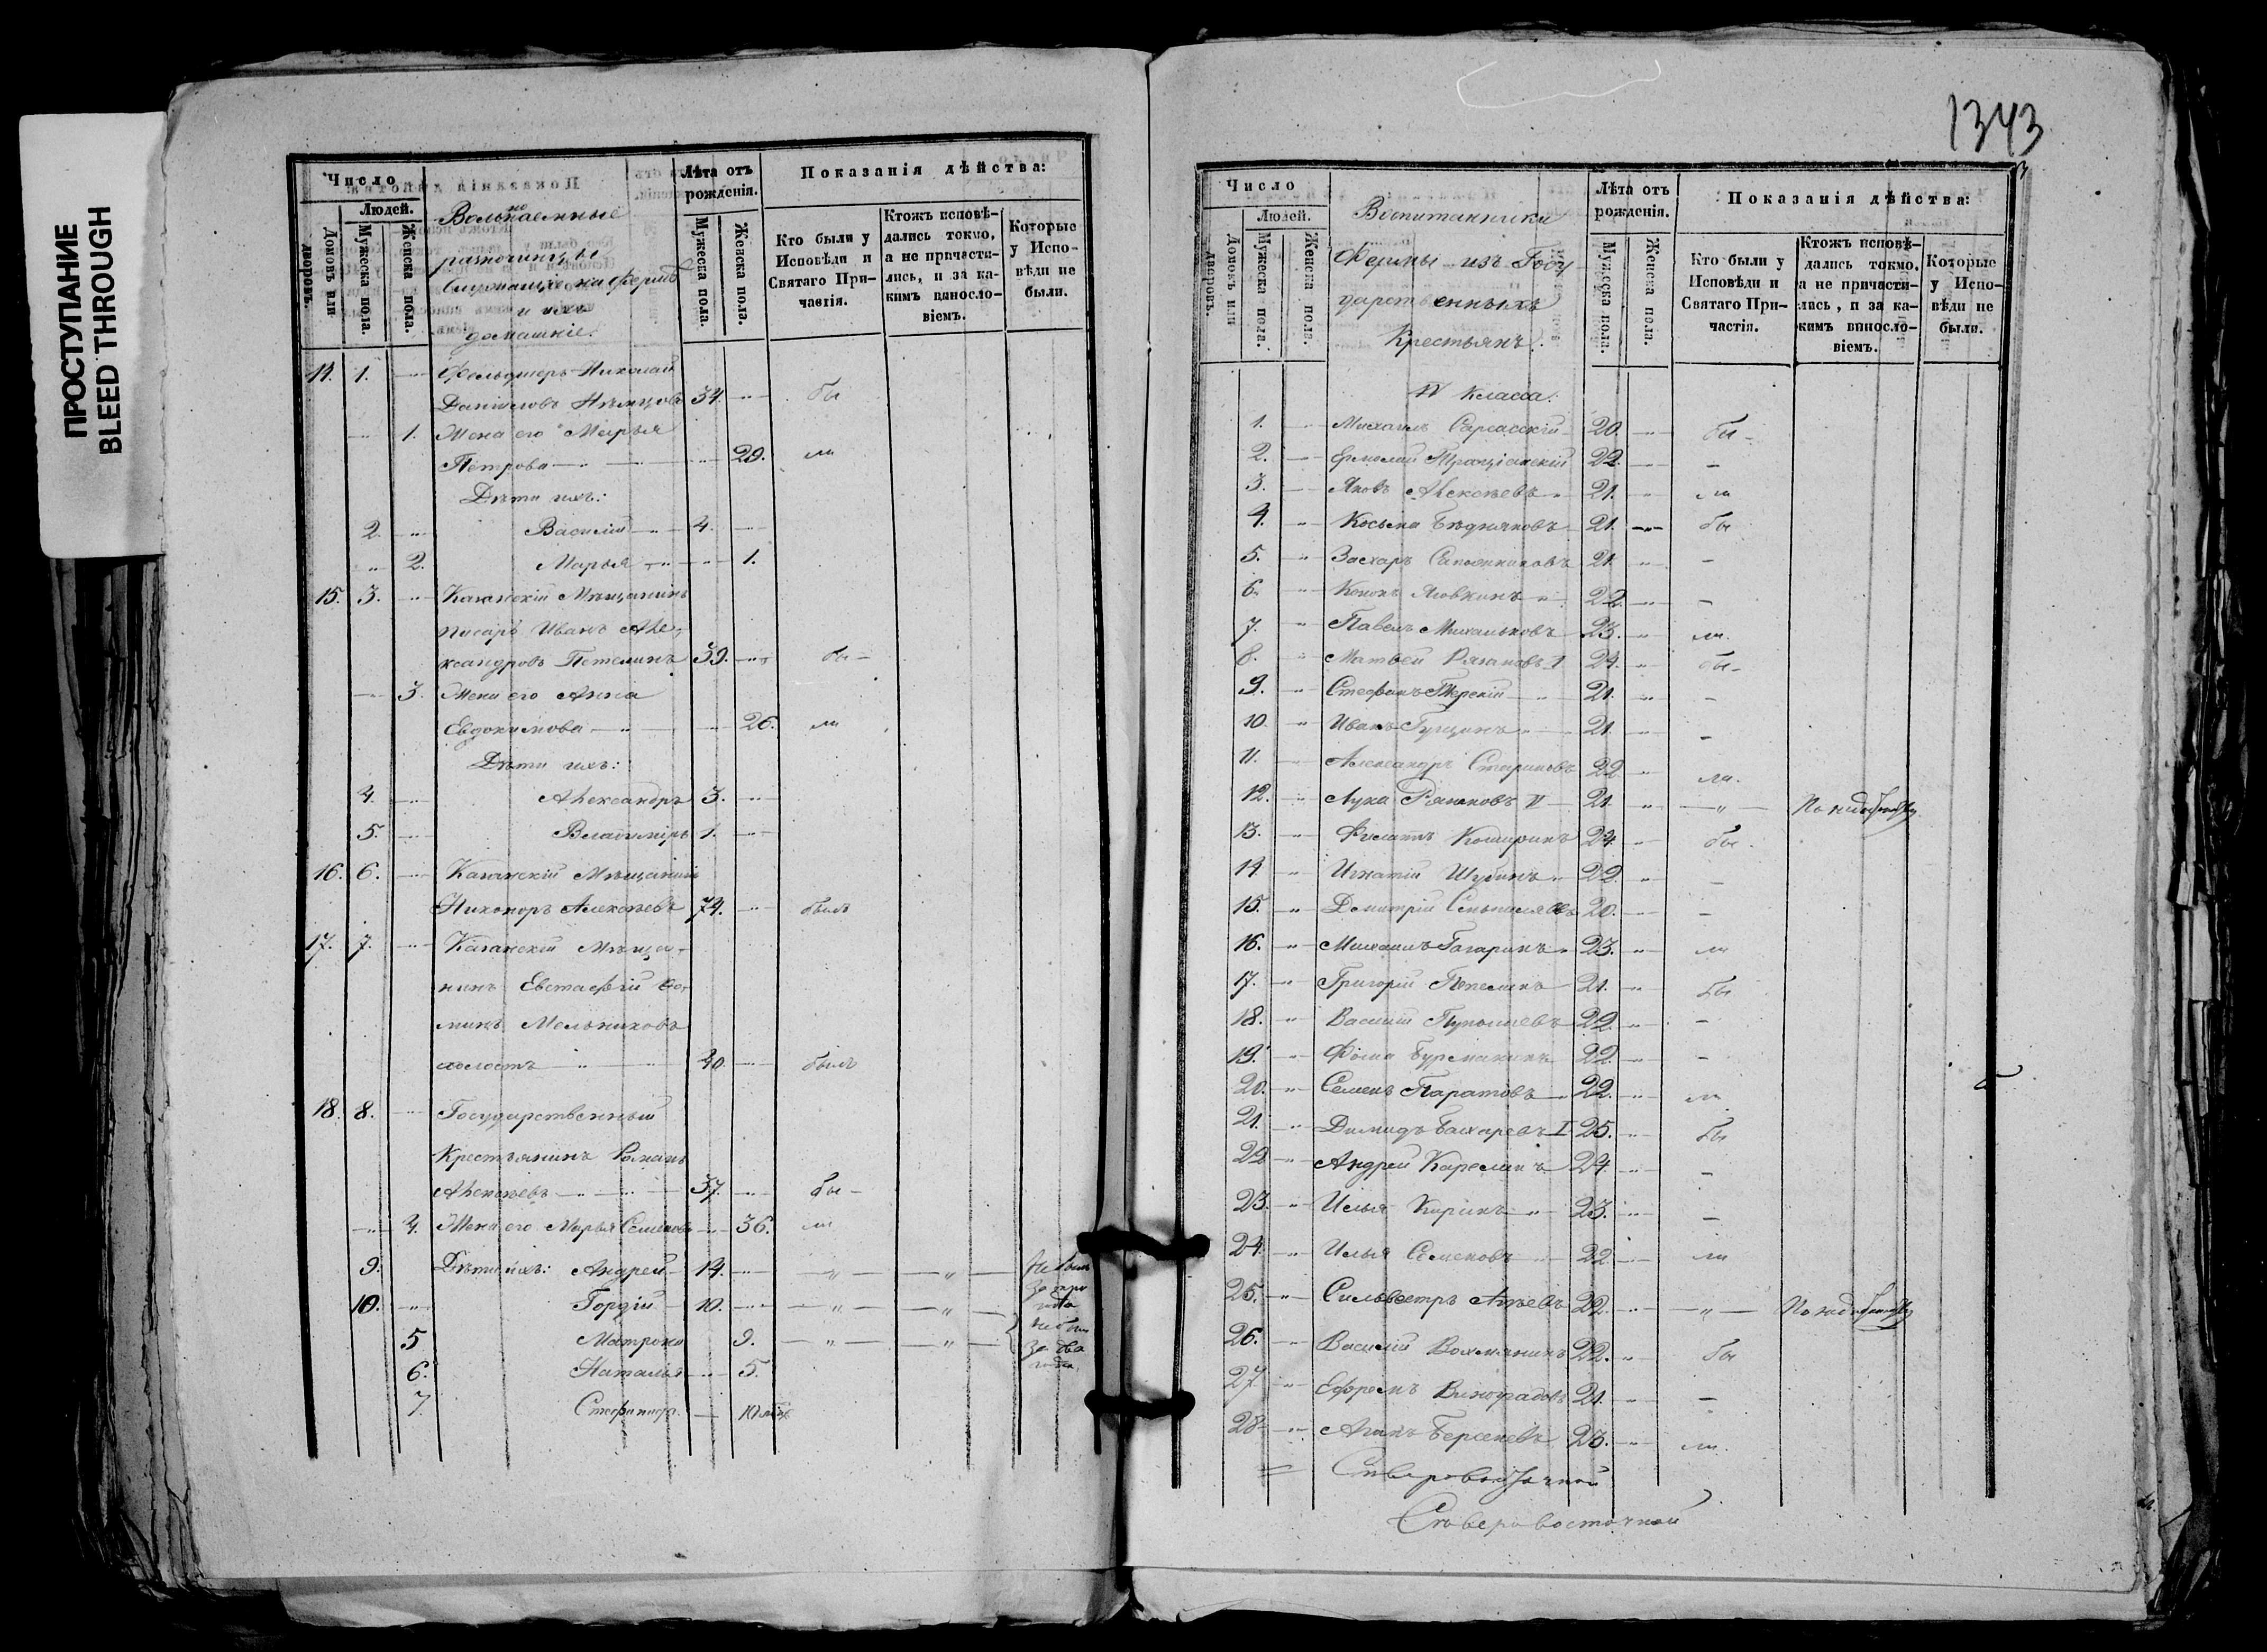 ПРОСТУПАНИЕ
BLEED THROUGH
Число
Людей.
Домовъ или дворовъ.
Мужеска пола.
Женска пола.
Вольнаемные
разночинцы
служащіе на фермѣ
и ихъ
домашніе.
Лѣта отъ рожденія.
Мужеска пола.
Женска пола.
Показанія дѣйства:
Кто были у Исповѣди и Святаго Причастія.
Ктожъ исповѣдались токмо, а не причастились, и за какимъ винословіемъ.
Которые у Исповѣди не были.
14. 1. Фельдшеръ Николай
Даниловъ Нѣмцовъ 34. бы
1. Жена его Марья
Петрова 29. ли
Дѣти ихъ:
2. Василій 4.
2. Марья 1.
15. 3. Казанскій Мѣщанинъ
писарь Иванъ Але-
ксандровъ Петелинъ 39. бы-
3. Жена его Анна
Евдокимова 26. ли
Дѣти ихъ:
4. Александръ 3.
5. Владиміръ 1.
16. 6. Казанскій Мѣщанинъ
Никоноръ Алексѣевъ 74. былъ
17. 7. Казанскій Мѣща-
нинъ Евстафій
Мельниковъ
холостъ 40. былъ
18. 8. Государственный
Крестьянинъ Романъ
Алексѣевъ 37. бы-
4. Жена его Марья Семенова 36. ли
9. Дѣти ихъ: Андрей 14. Не былъ
10. Гордій 10.
5 Матрона 9.
за два
года
6. Наталья 5.
7. Стефанида 10 мѣс.
1343
Число
Людей.
Домовъ или дворовъ.
Мужеска пола.
Женска пола.
Воспитанники
Фермы изъ Госу-
дарственныхъ
Крестьянъ.
Лѣта отъ рожденія.
Мужеска пола.
Женска пола.
Показанія дѣйства:
Кто были у Исповѣди и Святаго Причастія.
Ктожъ исповѣдались токмо, а не причастились, и за какимъ винословіемъ.
Которые у Исповѣди не были.
IV Класса.
1. Михаилъ 20. бы-
2. Ермолай 22. -
3. Яковъ Алексѣевъ 21. ли
4. Косьма Бѣдняковъ 21. бы
5. Захаръ Сапожниковъ 21. -
6. Кононъ 22. -
7. Павелъ Михальковъ 23. ли.
8. Матвей Рязановъ I 24. бы-
9. Стефанъ Терскій 21. -
10. Иванъ Гущинъ 21. -
11. Александръ Стариковъ 22 ли.
12. Лука Рязановъ II 21. По недобытію
13. Филатъ Коширинъ 24. бы.
14 Игнатій Шубинъ 22. -
15. Димитрій 20. -
16. Михаилъ Гагаринъ 23. ли
17. Григорій Пепелинъ 21. бы
18. Василій 22. -
19. Фома Бурмакинъ 22. -
20. Семенъ Паратовъ 22. ли
21. Димидъ Бахаревъ I 25. бы
22 Андрей Карелинъ 24. -
23. Илья Киринъ 23. -
24. Илья Семеновъ 22. ли
25. Сильвестръ Агѣевъ 22. По недобытію
26. Василій Вохмянинъ 22. бы
27 Ефремъ Виноградовъ 21. -
28 Агапъ Берсеневъ 23. ли.
Сѣверовосточной
Сѣверовосточной